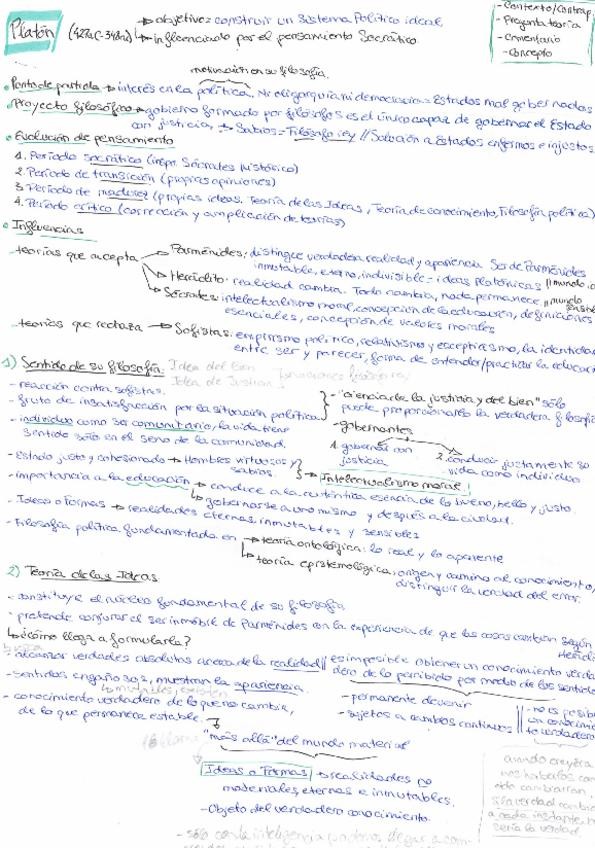 Platón (427aC-348aC) → objetivo: construir un Sistema Político ideal.
→ influenciado por el pensamiento Socrático.
- Contexto/Contrap
- Pregunta teoría
- Comentario
- Concepto
motivación en su filosofía.
• Punto de partida → interés en la política. Ni oligarquía ni democracia = Estados mal gobernados
• Proyecto filosófico → gobierno formado por filósofos es el único capaz de gobernar el Estado
con justicia. → Sabios = Filósofo rey // Solución a Estados enfermos e injustos
• Evolución de pensamiento
1. Período socrático (Sócrates histórico)
2. Período de transición (propias opiniones)
3. Período de madurez (propias ideas. Teoría de las Ideas, Teoría de conocimiento, Filosofía política)
4. Período crítico (corrección y ampliación de teorías)
• Influencias
teorías que acepta → Parménides: distingue verdadera realidad y apariencia. Ser de Parménides
inmutable, eterno, indivisible = ideas platónicas // mundo
→ Heráclito: realidad cambia. Todo cambia, nada permanece // mundo
→ Sócrates: intelectualismo moral, concepción de la educación, definiciones
esenciales, concepción de valores morales
teorías que rechaza → Sofistas: empirismo político, relativismo y escepticismo, la identidad
entre ser y parecer, forma de entender/practicar la educación
1) Sentido de su filosofía: Idea del bien
Idea de Justicia
- reacción contra sofistas.
- fruto de insatisfacción por la situación política
- individuo como ser comunitario, la vida tiene
sentido sólo en el seno de la comunidad.
- "ciencia de la justicia y del bien" sólo
puede proporcionarlo la verdadera filosofía
- gobernantes
1. gobernar con
justicia
2. conducir justamente su
vida como individuo
- Estado justo y cohesionado → Hombres virtuosos y
sabios.
→ Intelectualismo moral
- importancia a la educación → conduce a la auténtica esencia de lo bueno, bello y justo.
→ gobernarse a uno mismo y después a la ciudad.
- Ideas o Formas → realidades eternas, inmutables y sensibles
- Filosofía política fundamentada en → teoría ontológica: lo real y lo aparente
→ teoría epistemológica: origen y camino al conocimiento,
distinguir la verdad del error.
2) Teoría de las Ideas
- constituye el núcleo fundamental de su filosofía
- pretende conjurar el ser inmóbil de Parménides con la experiencia de que las cosas cambian según
↳ ¿cómo llega a formularla?
- alcanzar verdades absolutas acerca de la realidad // es imposible obtener un conocimiento verda
dero de lo percibido por medio de los sentidos
- Sentidos engañosos, muestran la apariencia.
- permanente devenir
- sujetos a cambios continuos
- no es posible
un conocimiento
verdadero
- conocimiento verdadero de lo que no cambia,
de lo que permanece estable.
"más allá" del mundo material
Ideas o Formas → realidades no
materiales, eternas e inmutables.
- Objeto del verdadero conocimiento.
- sólo con la inteligencia podemos llegar a